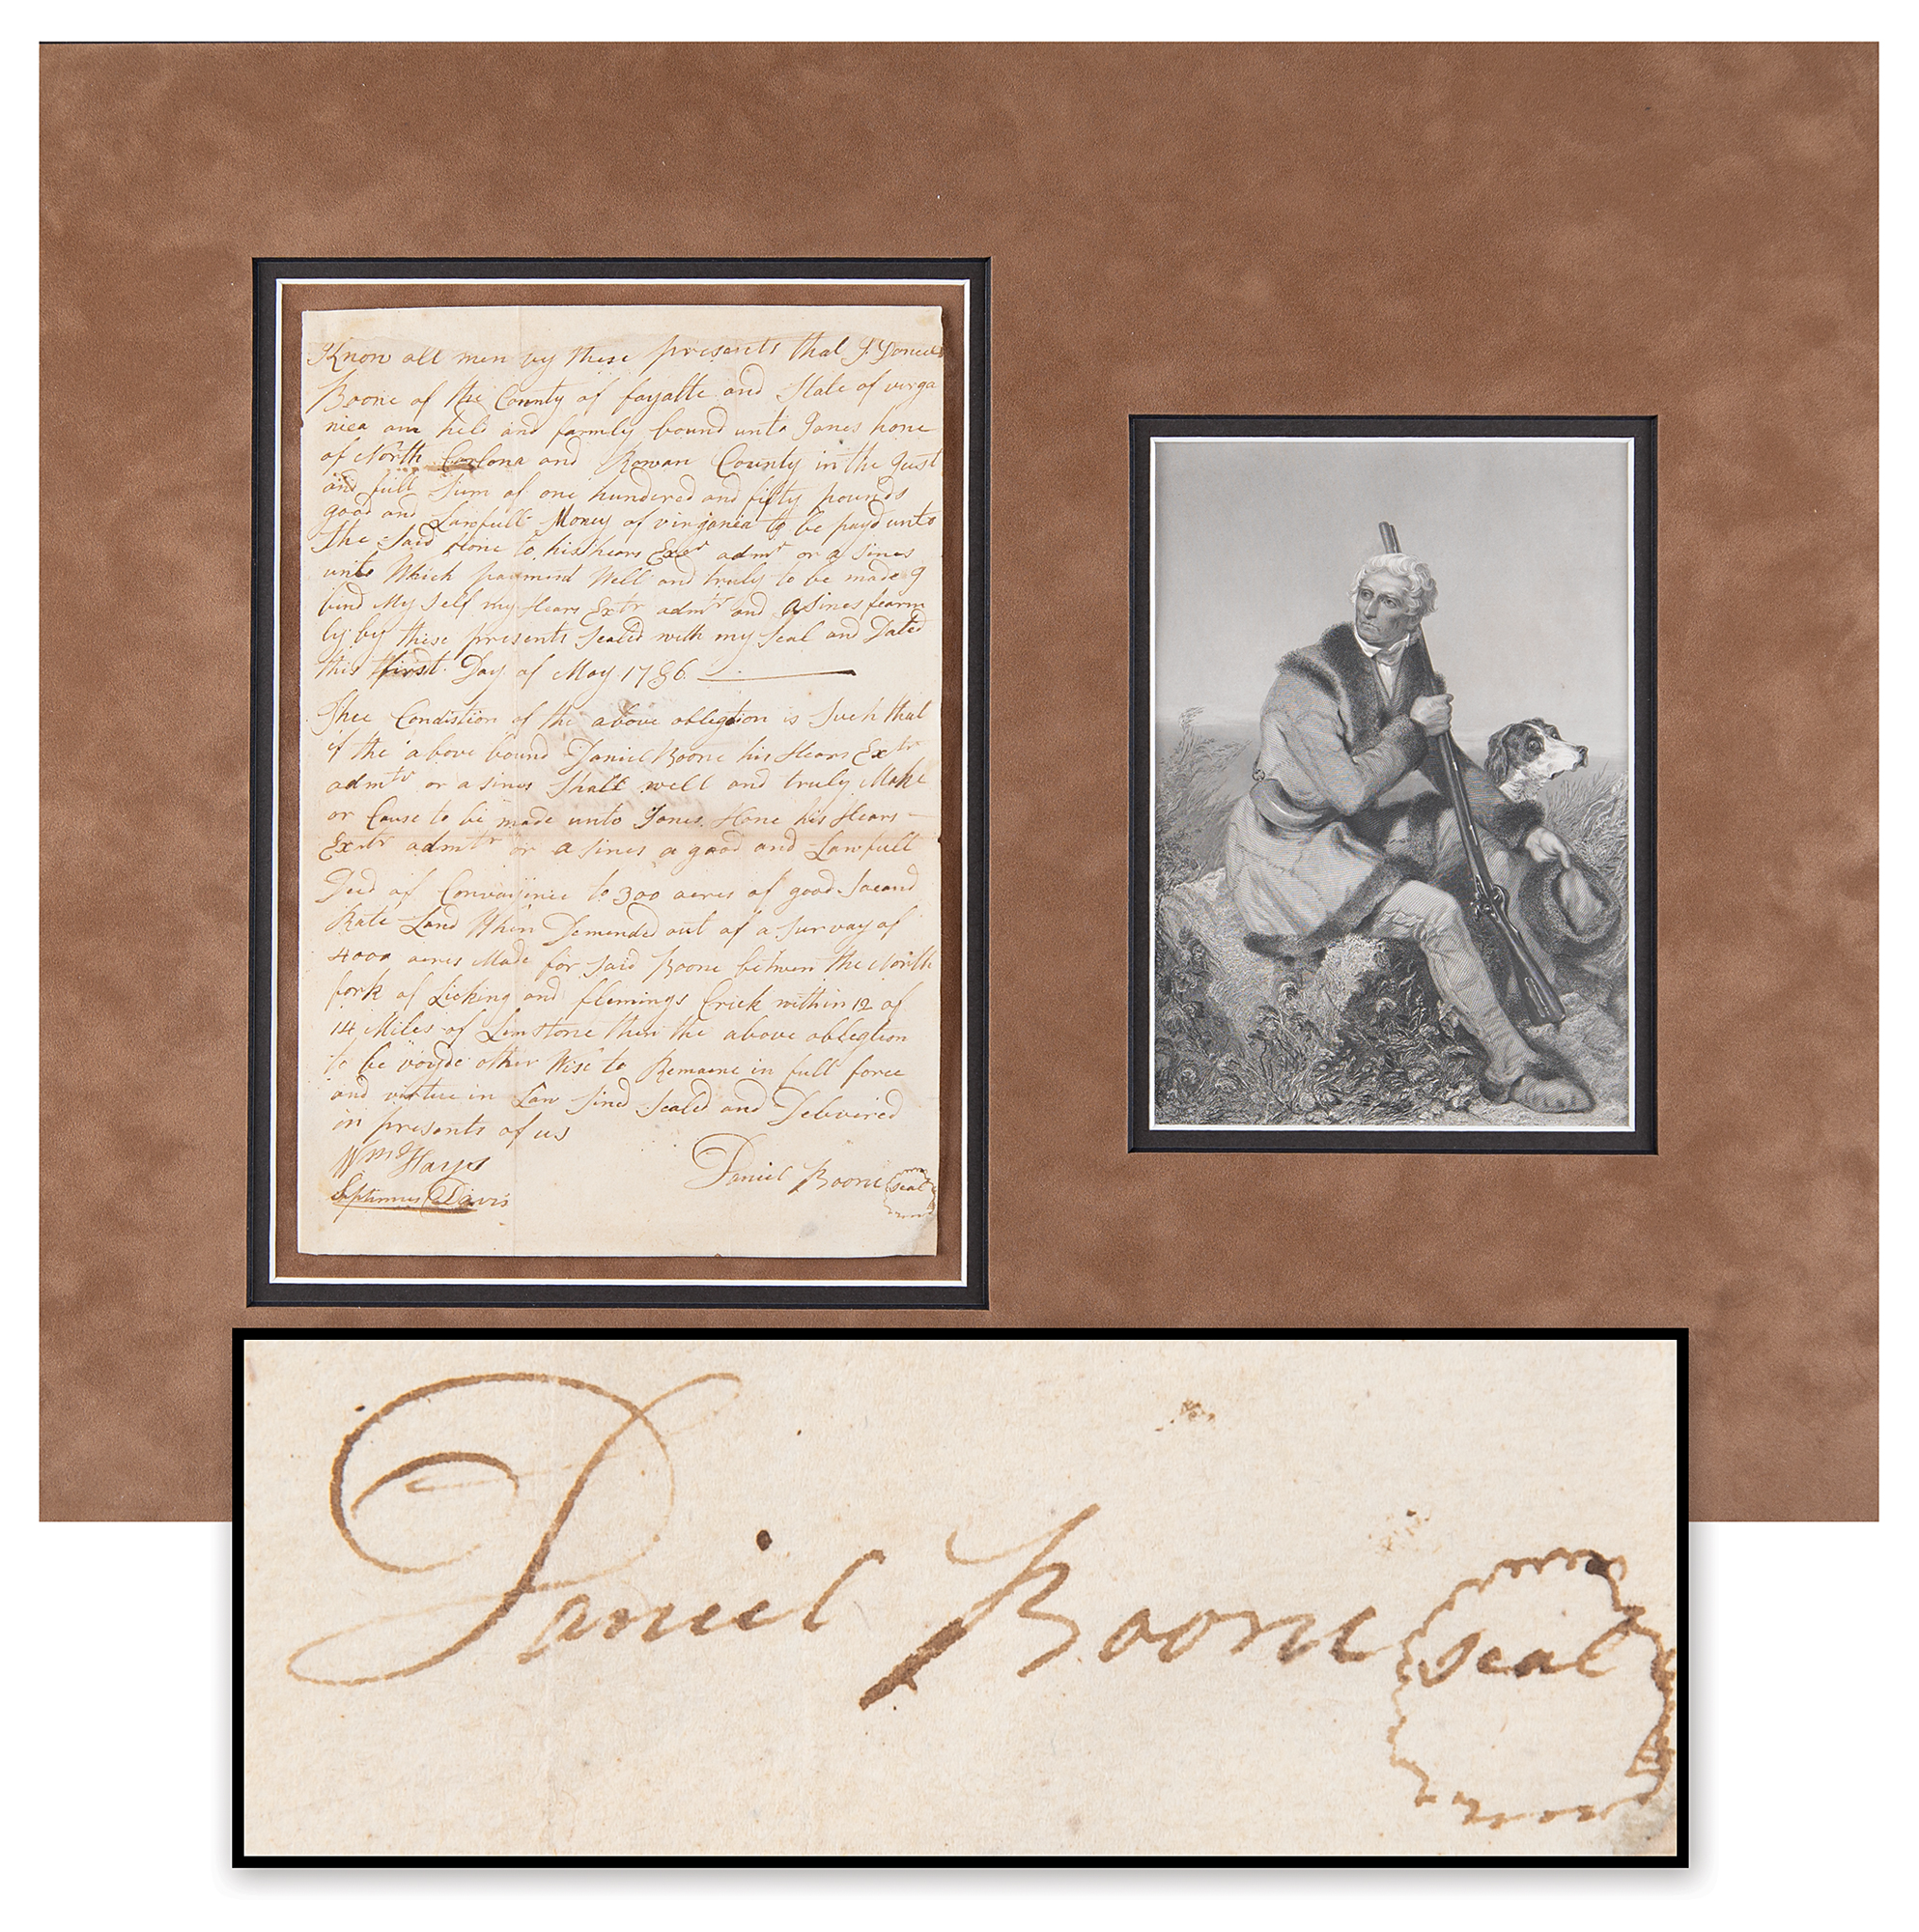 Know all men by these presents that I Daniel
Boone of the County of fayatte and State of virga
niea am held and farmly bound unto Jones hone
of North Carlona and Rowan County in the Just
and full Sum of one hundered and fifty pounds
good and Lawfull Money of virganea to be payd unto
The Said Hone to his hears Exer admr or a Sines
unto Which payment Well and truly to be made I
bind My Self my Hears Extr admtr and aSines fearm
ly by these presents Sealed with my Seal and Dated
this first Day of May 1786
Thee Condistion of the above oblegtion is Such that
if the above bound Daniel Boone his Hears Extr
admtr or a Sines Shall well and truly Make
or Cause to be made unto Jones Hone his Hears
Extr admtr or a Sines a good and Lawfull
Deed of Convaijince to 300 acres of good Sacand
Rate Land When Demended out of a Survay of
4000 acres Made for Said Boone betwen the North
fork of Licking and flemings Crick within 12 of
14 Miles of Limstone then the above oblegtion
to be voyde other Wise to Remaene in full force
and virtue in Law Sined Sealed and Delevired
in presents of us
Wm Hays
Septimus Davis
Daniel Boone seal
Daniel Boone seal